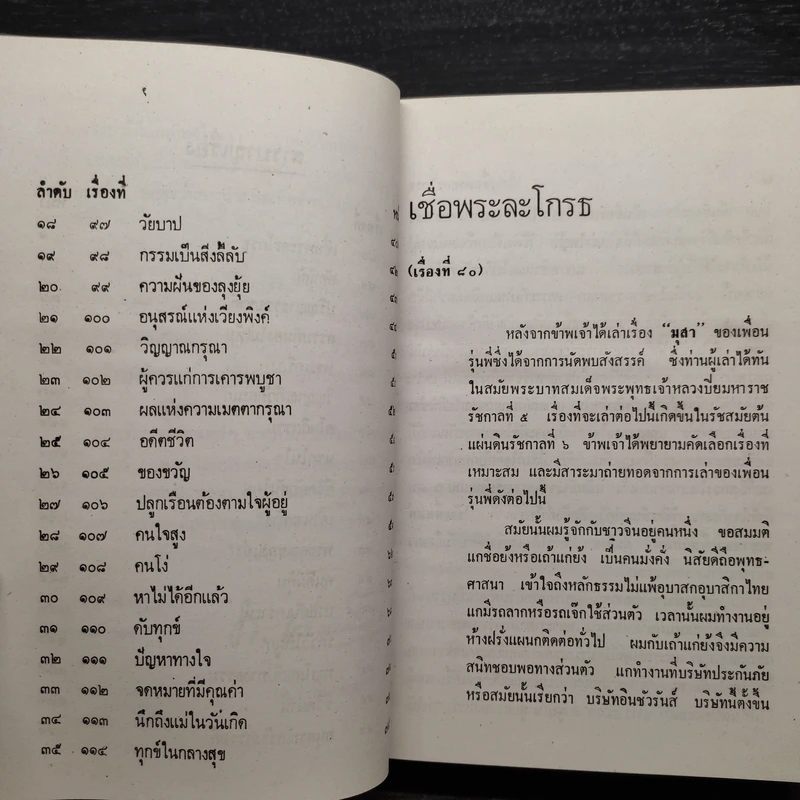 ลำดับ เรื่องที่
๑๘ ๙๗ วัยบาป
๑๙ ๙๘ กรรมเป็นสิ่งลี้ลับ
๒๐ ๙๙ ความฝันของลุงยุ้ย
๒๑ ๑๐๐ อนุสรณ์แห่งเวียงพิงค์
๒๒ ๑๐๑ วิญญาณกรุณา
๒๓ ๑๐๒ ผู้ควรแก่การเคารพบูชา
๒๔ ๑๐๓ ผลแห่งความเมตตากรุณา
๒๕ ๑๐๔ อดีตชีวิต
๒๖ ๑๐๕ ของขวัญ
๒๗ ๑๐๖ ปลูกเรือนต้องตามใจผู้อยู่
๒๘ ๑๐๗ คนใจสูง
๒๙ ๑๐๘ คนโง่
๓๐ ๑๐๙ หาไม่ได้อีกแล้ว
๓๑ ๑๑๐ ดับทุกข์
๓๒ ๑๑๑ ปัญหาทางใจ
๓๓ ๑๑๒ จดหมายที่มีคุณค่า
๓๔ ๑๑๓ นึกถึงแม่ในวันเกิด
๓๕ ๑๑๔ ทุกข์ในกลางสุข
เชื่อพระละโกรธ
(เรื่องที่ ๘๐)
หลังจากข้าพเจ้าได้เล่าเรื่อง “มุสา” ของเพื่อน
รุ่นพี่ซึ่งได้จากการนัดพบสังสรรค์ ซึ่งท่านผู้เล่าได้ทัน
ในสมัยพระบาทสมเด็จพระพุทธเจ้าหลวงปิยมหาราช
รัชกาลที่ ๕ เรื่องที่จะเล่าต่อไปนี้เกิดขึ้นในรัชสมัยต้น
แผ่นดินรัชกาลที่ ๖ ข้าพเจ้าได้พยายามคัดเลือกเรื่องที่
เหมาะสม และมีสาระมาถ่ายทอดจากการเล่าของเพื่อน
รุ่นพี่ดังต่อไปนี้
สมัยนั้นผมรู้จักกับชาวจีนอยู่คนหนึ่ง ขอสมมติ
แกชื่อย้งหรือเถ้าแก่ย้ง เป็นคนมั่งคั่ง นิสัยดีถือพุทธ-
ศาสนา เข้าใจถึงหลักธรรมไม่แพ้อุบาสกอุบาสิกาไทย
แกมีรถลากหรือรถเจ๊กใช้ส่วนตัว เวลานั้นผมทำงานอยู่
ห้างฝรั่งแผนกติดต่อทั่วไป ผมกับเถ้าแก่ย้งจึงมีความ
สนิทชอบพอทางส่วนตัว แกทำงานที่บริษัทประกันภัย
หรือสมัยนั้นเรียกว่า บริษัทอินชัวรันส์ บริษัทนี้ตั้งขึ้น